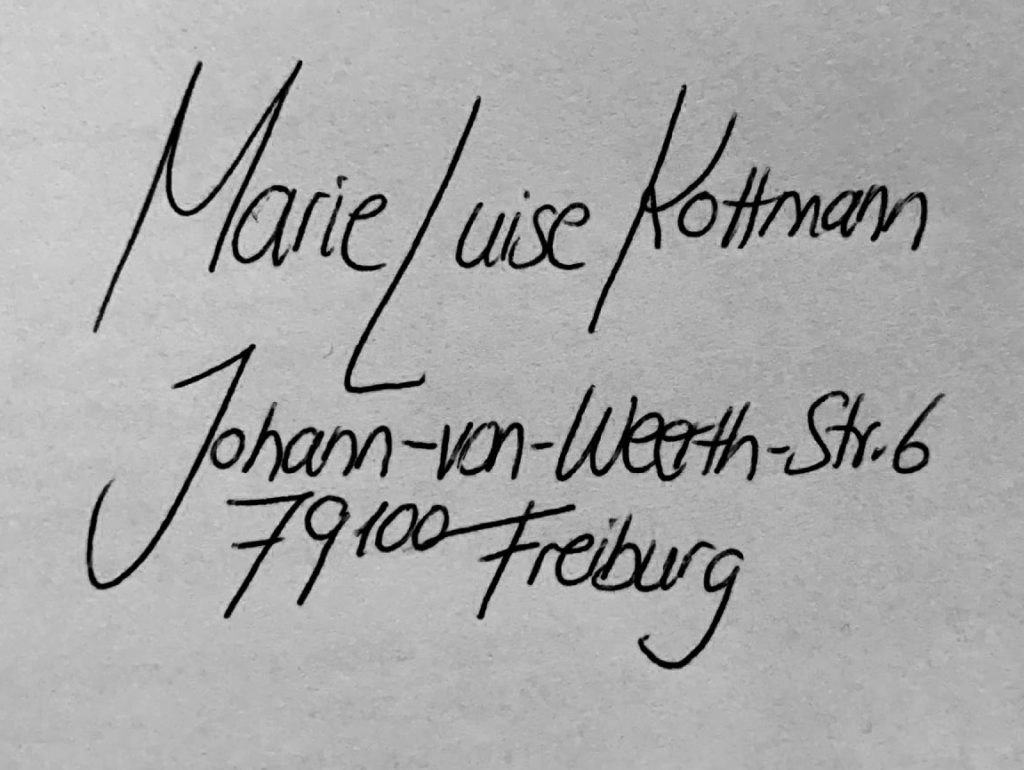 Marie Luise Kottmann
Johann-von-Weerth-Str. 6
79100 Freiburg